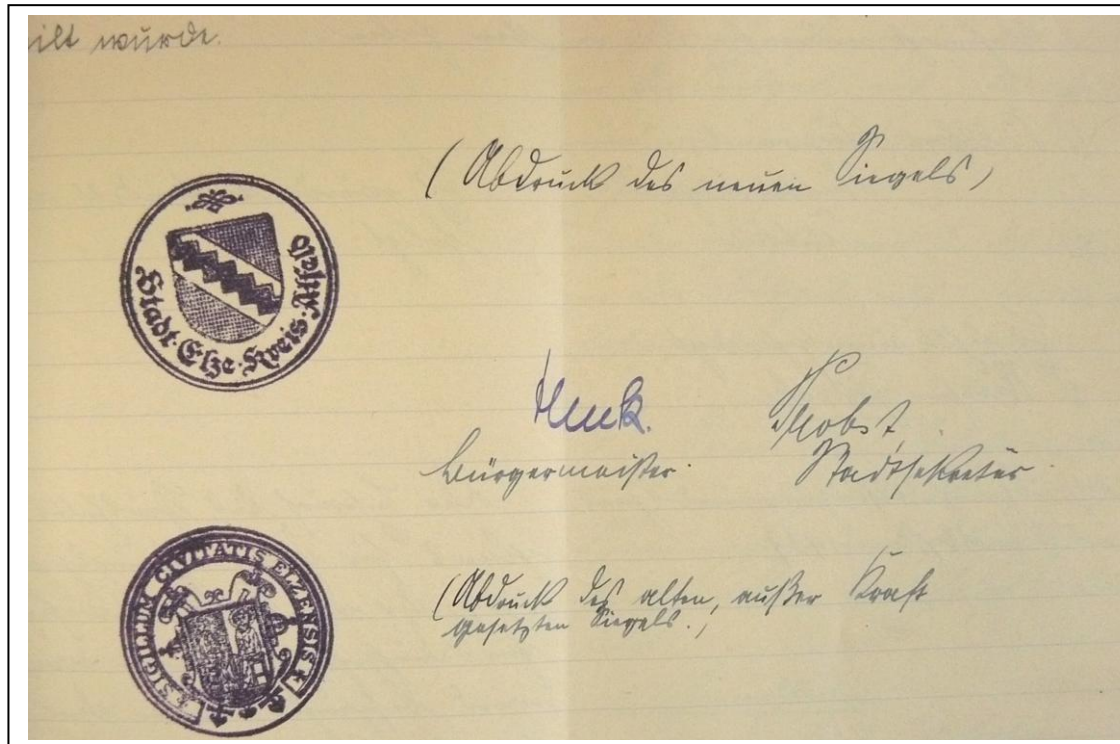 ilt wurde.
(Abdruck des neuen Siegels)
Stadt · Elze · Kreis · Alfeld
Probst
Bürgermeister. Stadtsekretär.
SIGILLUM CIVITATIS ELZENSIS
(Abdruck des alten, außer Kraft
gesetzten Siegels.)